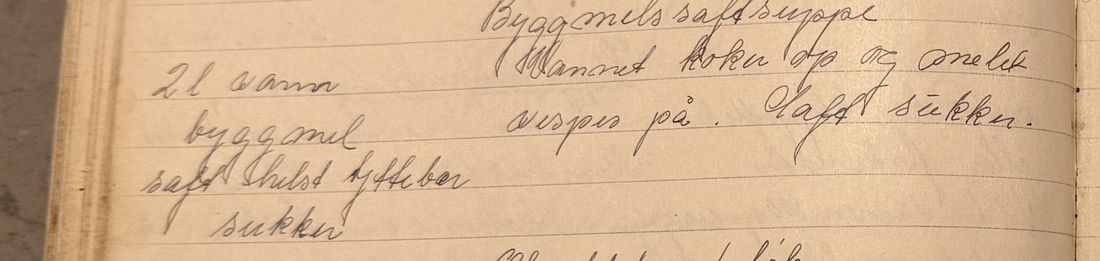 Byggmelssaftsuppe
2 l vann
byggmel
saft helst tyttebær
sukker
Vannet koker op og melet
vispes på. Saft sukker.